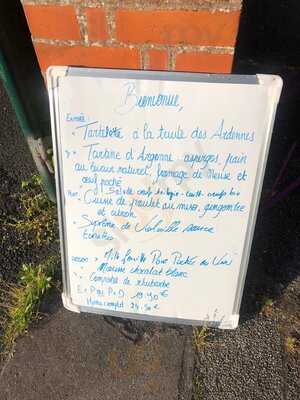 Bienvenue,
Entrée :
Tartelette à la truite des Ardennes
Tartine d'Argenne : asperges, pain
au levain naturel, fromage de Meuse et
œuf poché
Plat :
Cuisse de poulet au miso, gingembre
et citron
Suprême de Volaille sauce
DESSERT :
Mille feuille Poire Pochée au Vin
Mousse chocolat blanc
Compotée de rhubarbe
E + P ou P + D 19.90€
Menu complet 24.50€